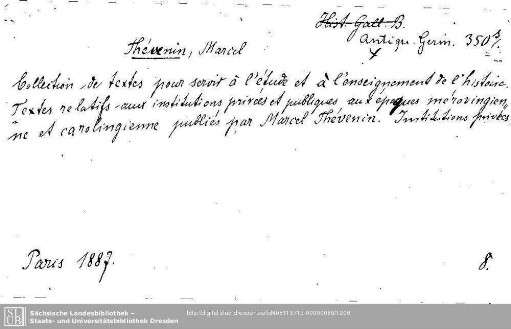 Hist. Gall. B.
Antiqu. Germ. 350
Thévenin, Marcel
Collection de textes pour servir à l'étude et à l'enseignement de l'histoire.
Textes relatifs aux institutions privées et publiques aux époques mérovingien-
ne et carolingienne publiés par Marcel Thévenin. Institutions privées
Paris 1887. 8.
SLUB Sächsische Landesbibliothek –
Staats- und Universitätsbibliothek Dresden